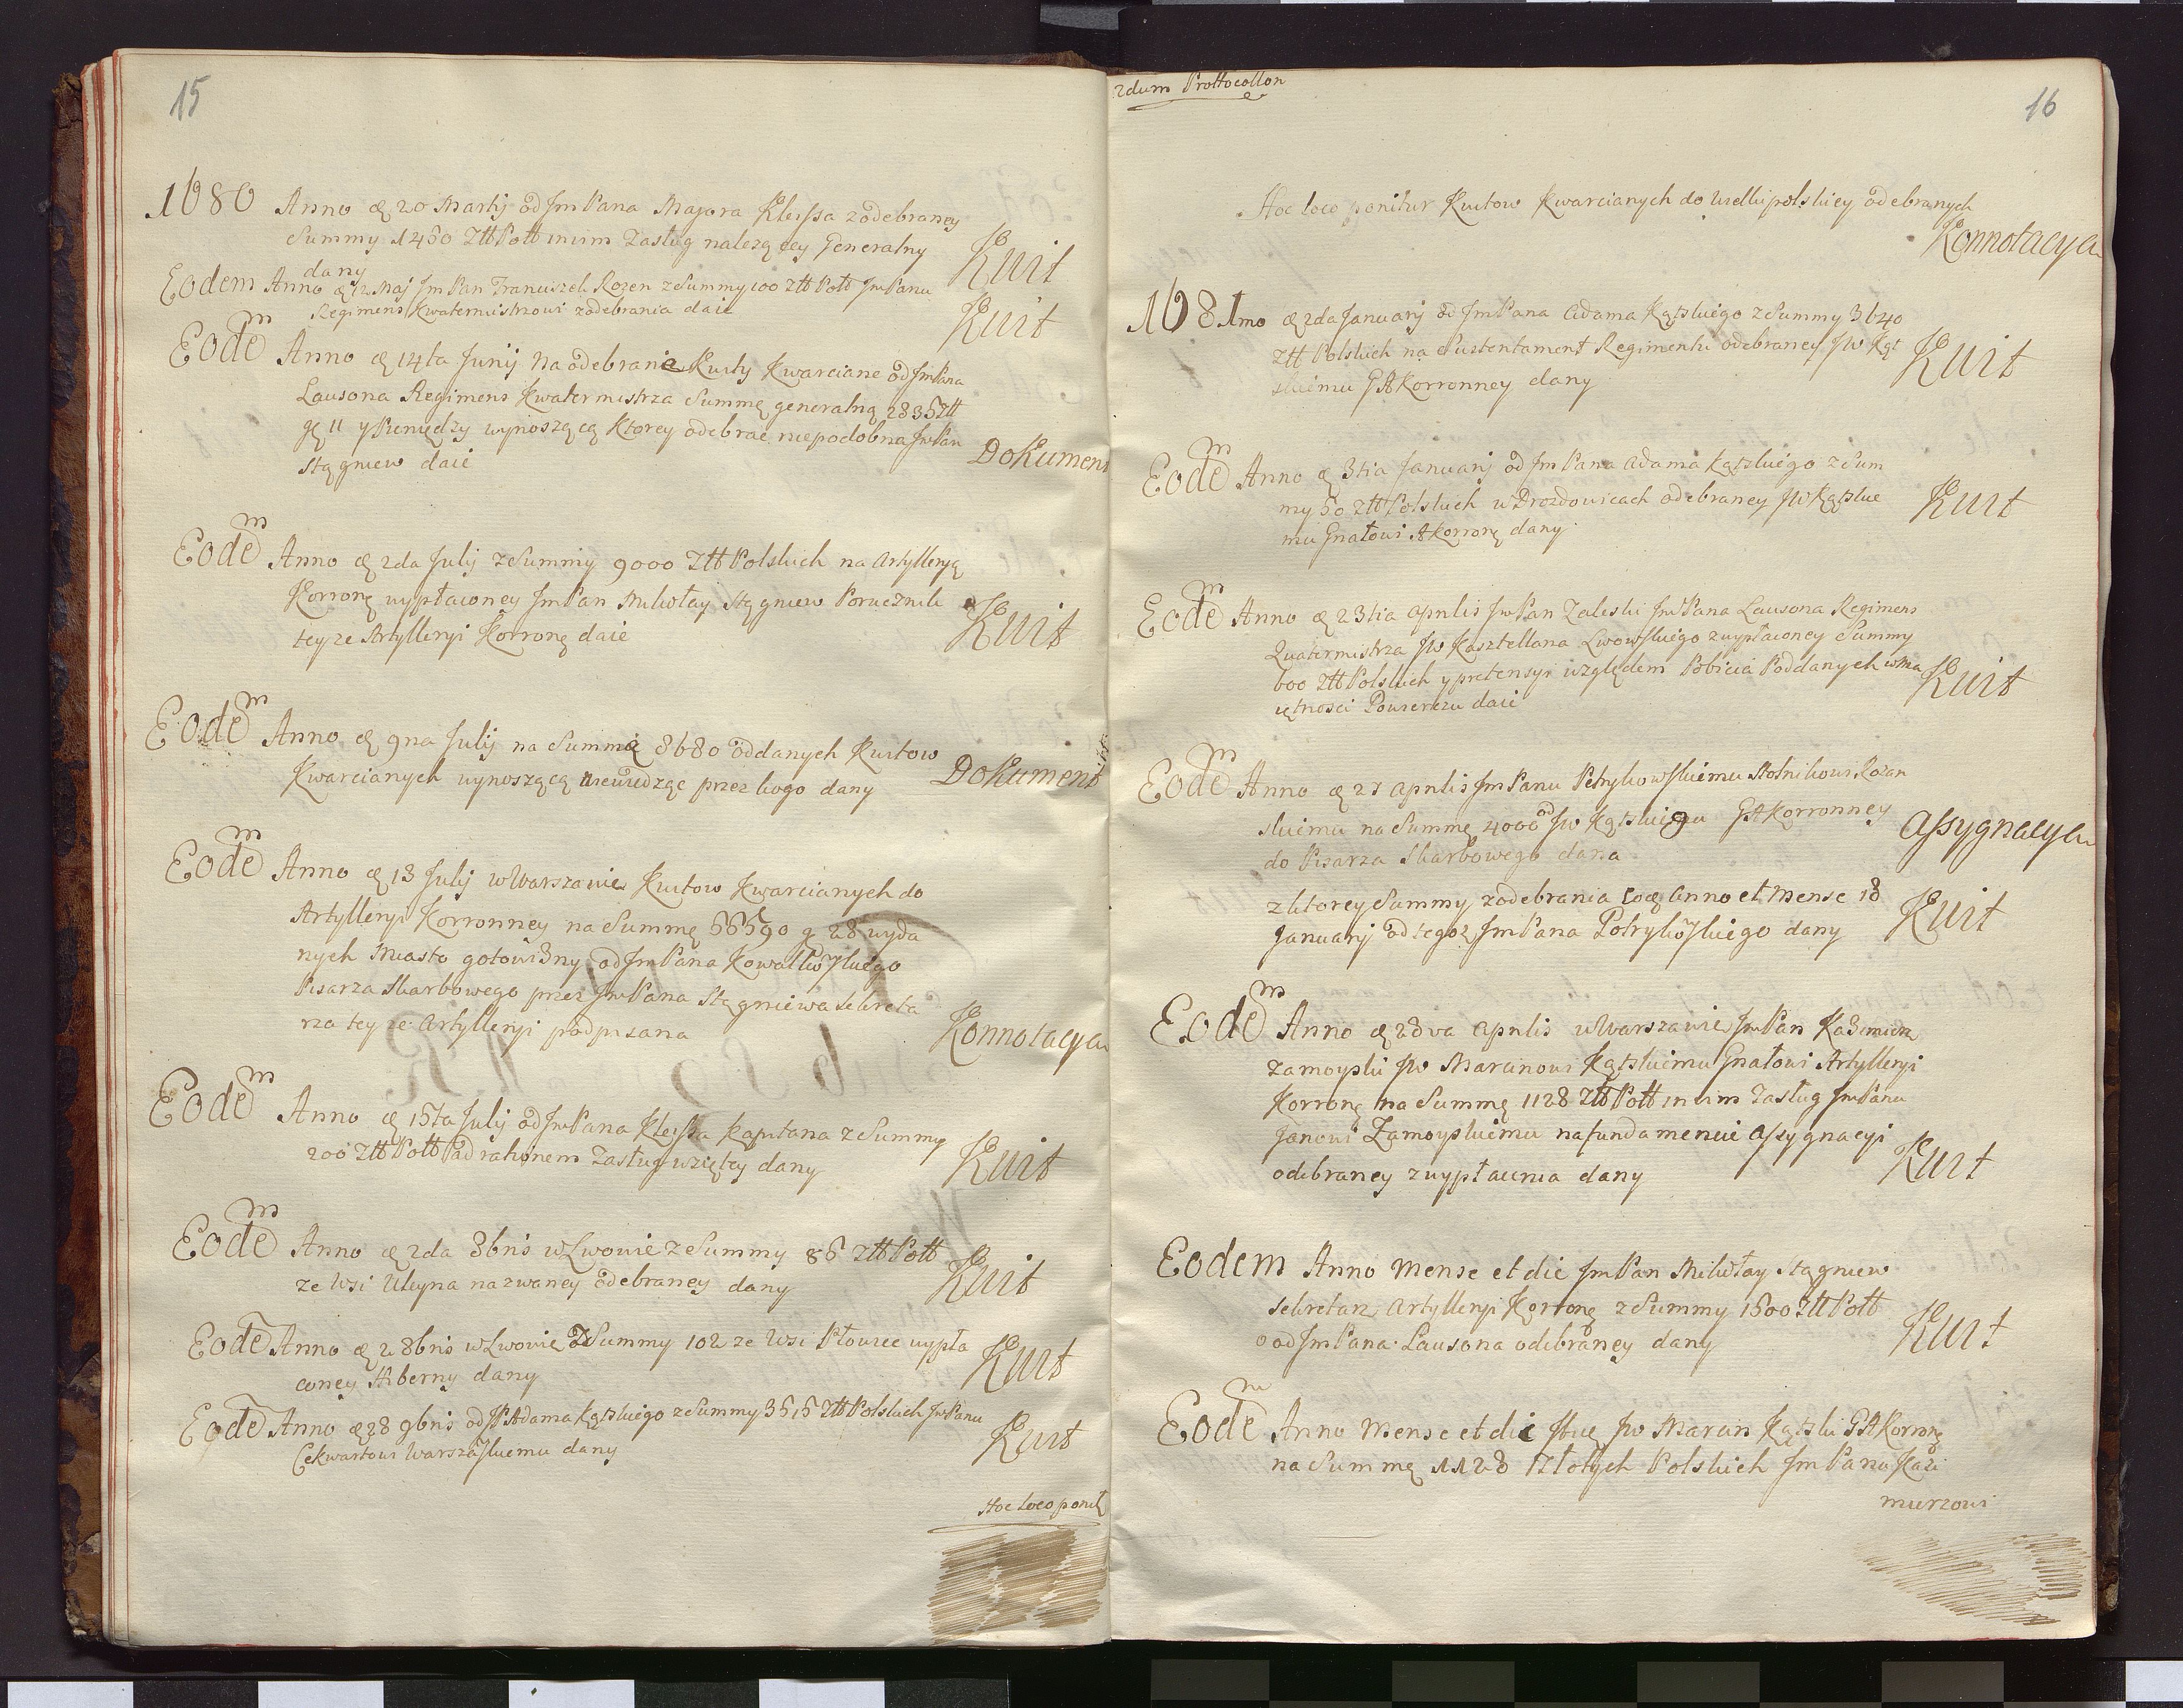 15
1680 Anno æ 20 Martij od JmPana Majora Kleyssa z odebraney
Summy 1450 Ztt Polt in vim Zasług nalezącey Generalny
dany Kuit
Eodem Anno æ 12 Maj JmPan Franciszek Rozen z Summy 100 Ztt Polt JmPanu
Regimens Kwatermistrzowi z odebrania daie Kuit
Eodem Anno æ 14ta Junij Na odebranie Kuity Kwarciane od JmPana
Lausona Regimens Kwatermistrza Summę generalną 2835 Ztt
gę 11 y Pieniędzy wynoszącą ktorey odebrać niepodobna JmPan
Stągniew daie Dokument
Eodem Anno æ 2da Julij z Summy 9000 Ztt Polskich na Artylleryą
Korronę wypłaconey JmPan Mikołay Stągniew Porucznik
teyze Artylleryi Korronę daie Kuit
Eodem Anno æ 9na Julij na Summę 8680 oddanych Kuitow
Kwarcianych wynoszącą niewiedząc przez kogo dany Dokument
Eodem Anno æ 13 Julij w Warszawie Kuitow Kwarcianych do
Artylleryi Korronney na Summę 55590 g 28 wyda
nych Miasto gotowizny od JmPana Kowalkowskiego
Pisarza Skarbowego przez JmPana Stągniewa Sekreta
rza teyze Artylleryi podpisana Konnotacya
Eodem Anno æ 15ta Julij od JmPana Kleyssa Kapitana z Summy
200 Ztt Polt ad rationem Zasług wziętey dany Kuit
Eodem Anno æ 2da 8bris w Lwowie z Summy 85 Ztt Polt
ze Wsi Uhyna nazwaney odebraney dany Kuit
Eode Anno æ 2 8bris w Lwowie z Summy 102 ze Wsi Płowce wypła
coney Hiberny dany Kuit
Eode Anno æ 28 9bris od JP Adama Kątskiego z Summy 3515 Ztt Polskich JmPanu
Cekwartowi Warszaskiemu dany Kuit
Hoc loco ponit
2dum Prottocollon
16
Hoc loco ponitur Kuitow Kwarcianych do Wielkipolskiey odebranych
Konnotacya
1681mo æ 2da Januarij od JmPana Adama Kątskiego z Summy 3640
Ztt Polskich na Sustentament Regimentu odebraney JW Kąt
skiemu GAKorronney dany Kuit
Eodem Anno æ 3tia Januarij od JmPana Adama Kątskiego z Sum
my 50 Ztt Polskich w Drozdowicach odebraney JW Kątskie
mu Gnałowi AKorronę dany Kuit
Eodem Anno æ 23tia Aprilis JmPan Zaleski JmPana Lausona Regimens
Quatermistrza JW Kasztellana Lwowskiego z wypłaconey Summy
600 Ztt Polskich y pretensyi względem Pobicia Poddanych w Ma
iętnosci daie Kuit
Eodem Anno æ 25 Aprilis JmPanu Petrykowskiemu Stolnikowi Rozan
skiemu na Summę 4000 od JW Kątskiego GAKorronney
do Pisarza Skarbowego dana Assygnacya
z ktorey Summy z odebrania Eoq Anno et Mense 18
Januarij od tegoz JmPana Potrykoskiego dany Kuit
Eodem Anno æ 28va Aprilis w Warszawie JmPan Kazimierz
Zamoyski JW Marcinowi Kątskiemu Gnałowi Artylleryi
Korronę na Summę 1128 Ztt Polt in vim Zasług JmPanu
Janowi Zamoyskiemu na fundamencie Assygnacyi
odebraney z wypłacenia dany Kuit
Eodem Anno Mense et die JmPan Mikołay Stągniew
Sekretarz Artylleryi Korronę z Summy 1500 Ztt Polt
od JmPana Lausona odebraney dany Kuit
Eodem Anno Mense et die JW Marcin Kątski GAKorronę
na Summę 1128 Złotych Polskich JmPanu Kazi
mierzowi